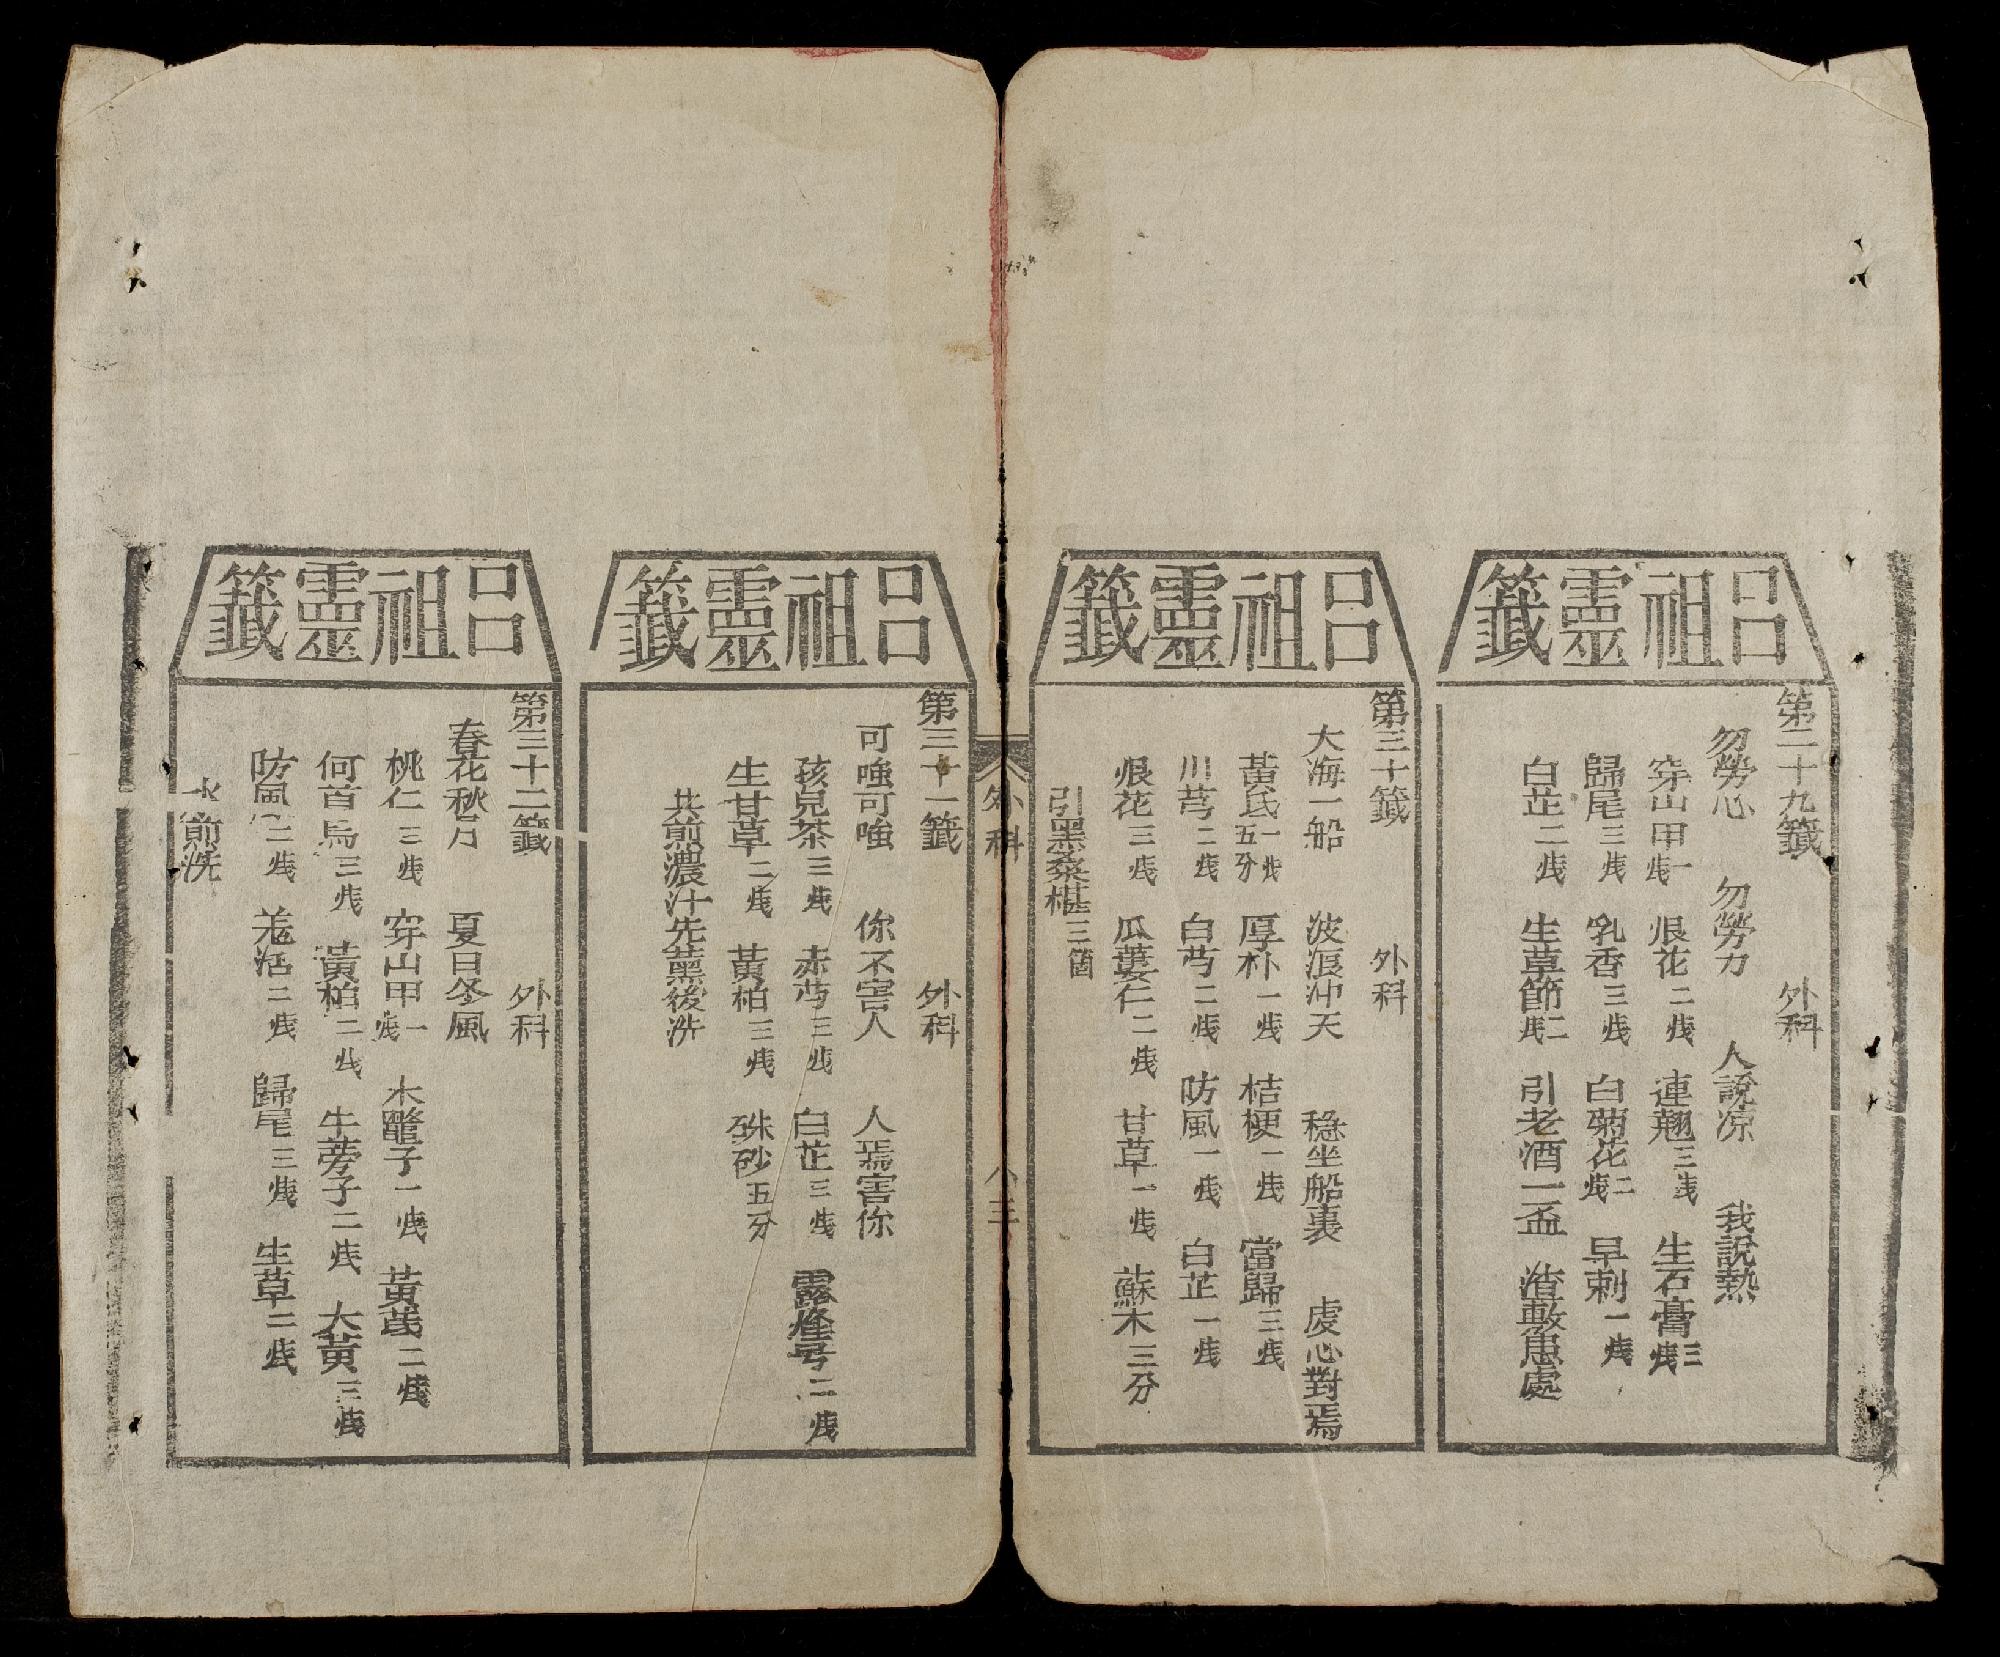 呂祖靈籤
第二十九籤 外科
勿勞心 勿勞力 人說凉 我說熱
穿山甲一戋 恨花二戋 連翹三戋 生石膏三戋
歸尾三戋 乳香三戋 白菊花二戋 早刺一戋
白芷二戋 生草節二戋 引老酒一盃 渣敷患處
呂祖靈籤
第三十籤 外科
大海一船 波浪冲天 穏坐船裏 虔心對焉
黃氏一戋五分 厚朴一戋 桔梗一戋 當歸三戋
川芎二戋 白芍二戋 防風一戋 白芷一戋
恨花三戋 瓜蔞仁二戋 甘草一戋 蘇木三分
引黑桑椹三箇
外科 八三
呂祖靈籤
第三十一籤 外科
可嗤可嗤 你不害人 人焉害你
孩兒茶三戋 赤芍三戋 白芷三戋 露蜂号二戋
生甘草二戋 黃柏三戋 硃砂五分
共煎濃汁先薰後洗
呂祖靈籤
第三十二籤 外科
春花秋月 夏日冬風
桃仁三戋 穿山甲一戋 木鼈子一戋 黃芪二戋
何首烏三戋 黃柏二戋 牛蒡子二戋 大黃三戋
防風二戋 羌活二戋 歸尾三戋 生草二戋
水煎洗